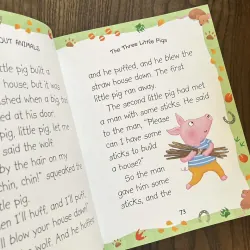 OUT ANIMALS
ttle pig built a
house, but it was
shed when a big
ed at his door.
pig, little pig, let me
said the wolf.
by the hair on my
chin, chin!" squeaked the
tle pig.
en I'll huff, and I'll puff
ll blow your house down"
e wolf. And he huffed
The Three Little Pigs
and he puffed, and he blew the
straw house down. The first
little pig ran away.
The second little pig had met
a man with some sticks. He said
to the man, "Please
can I have some
sticks to build
a house?"
So the man
gave him some
sticks, and the
73